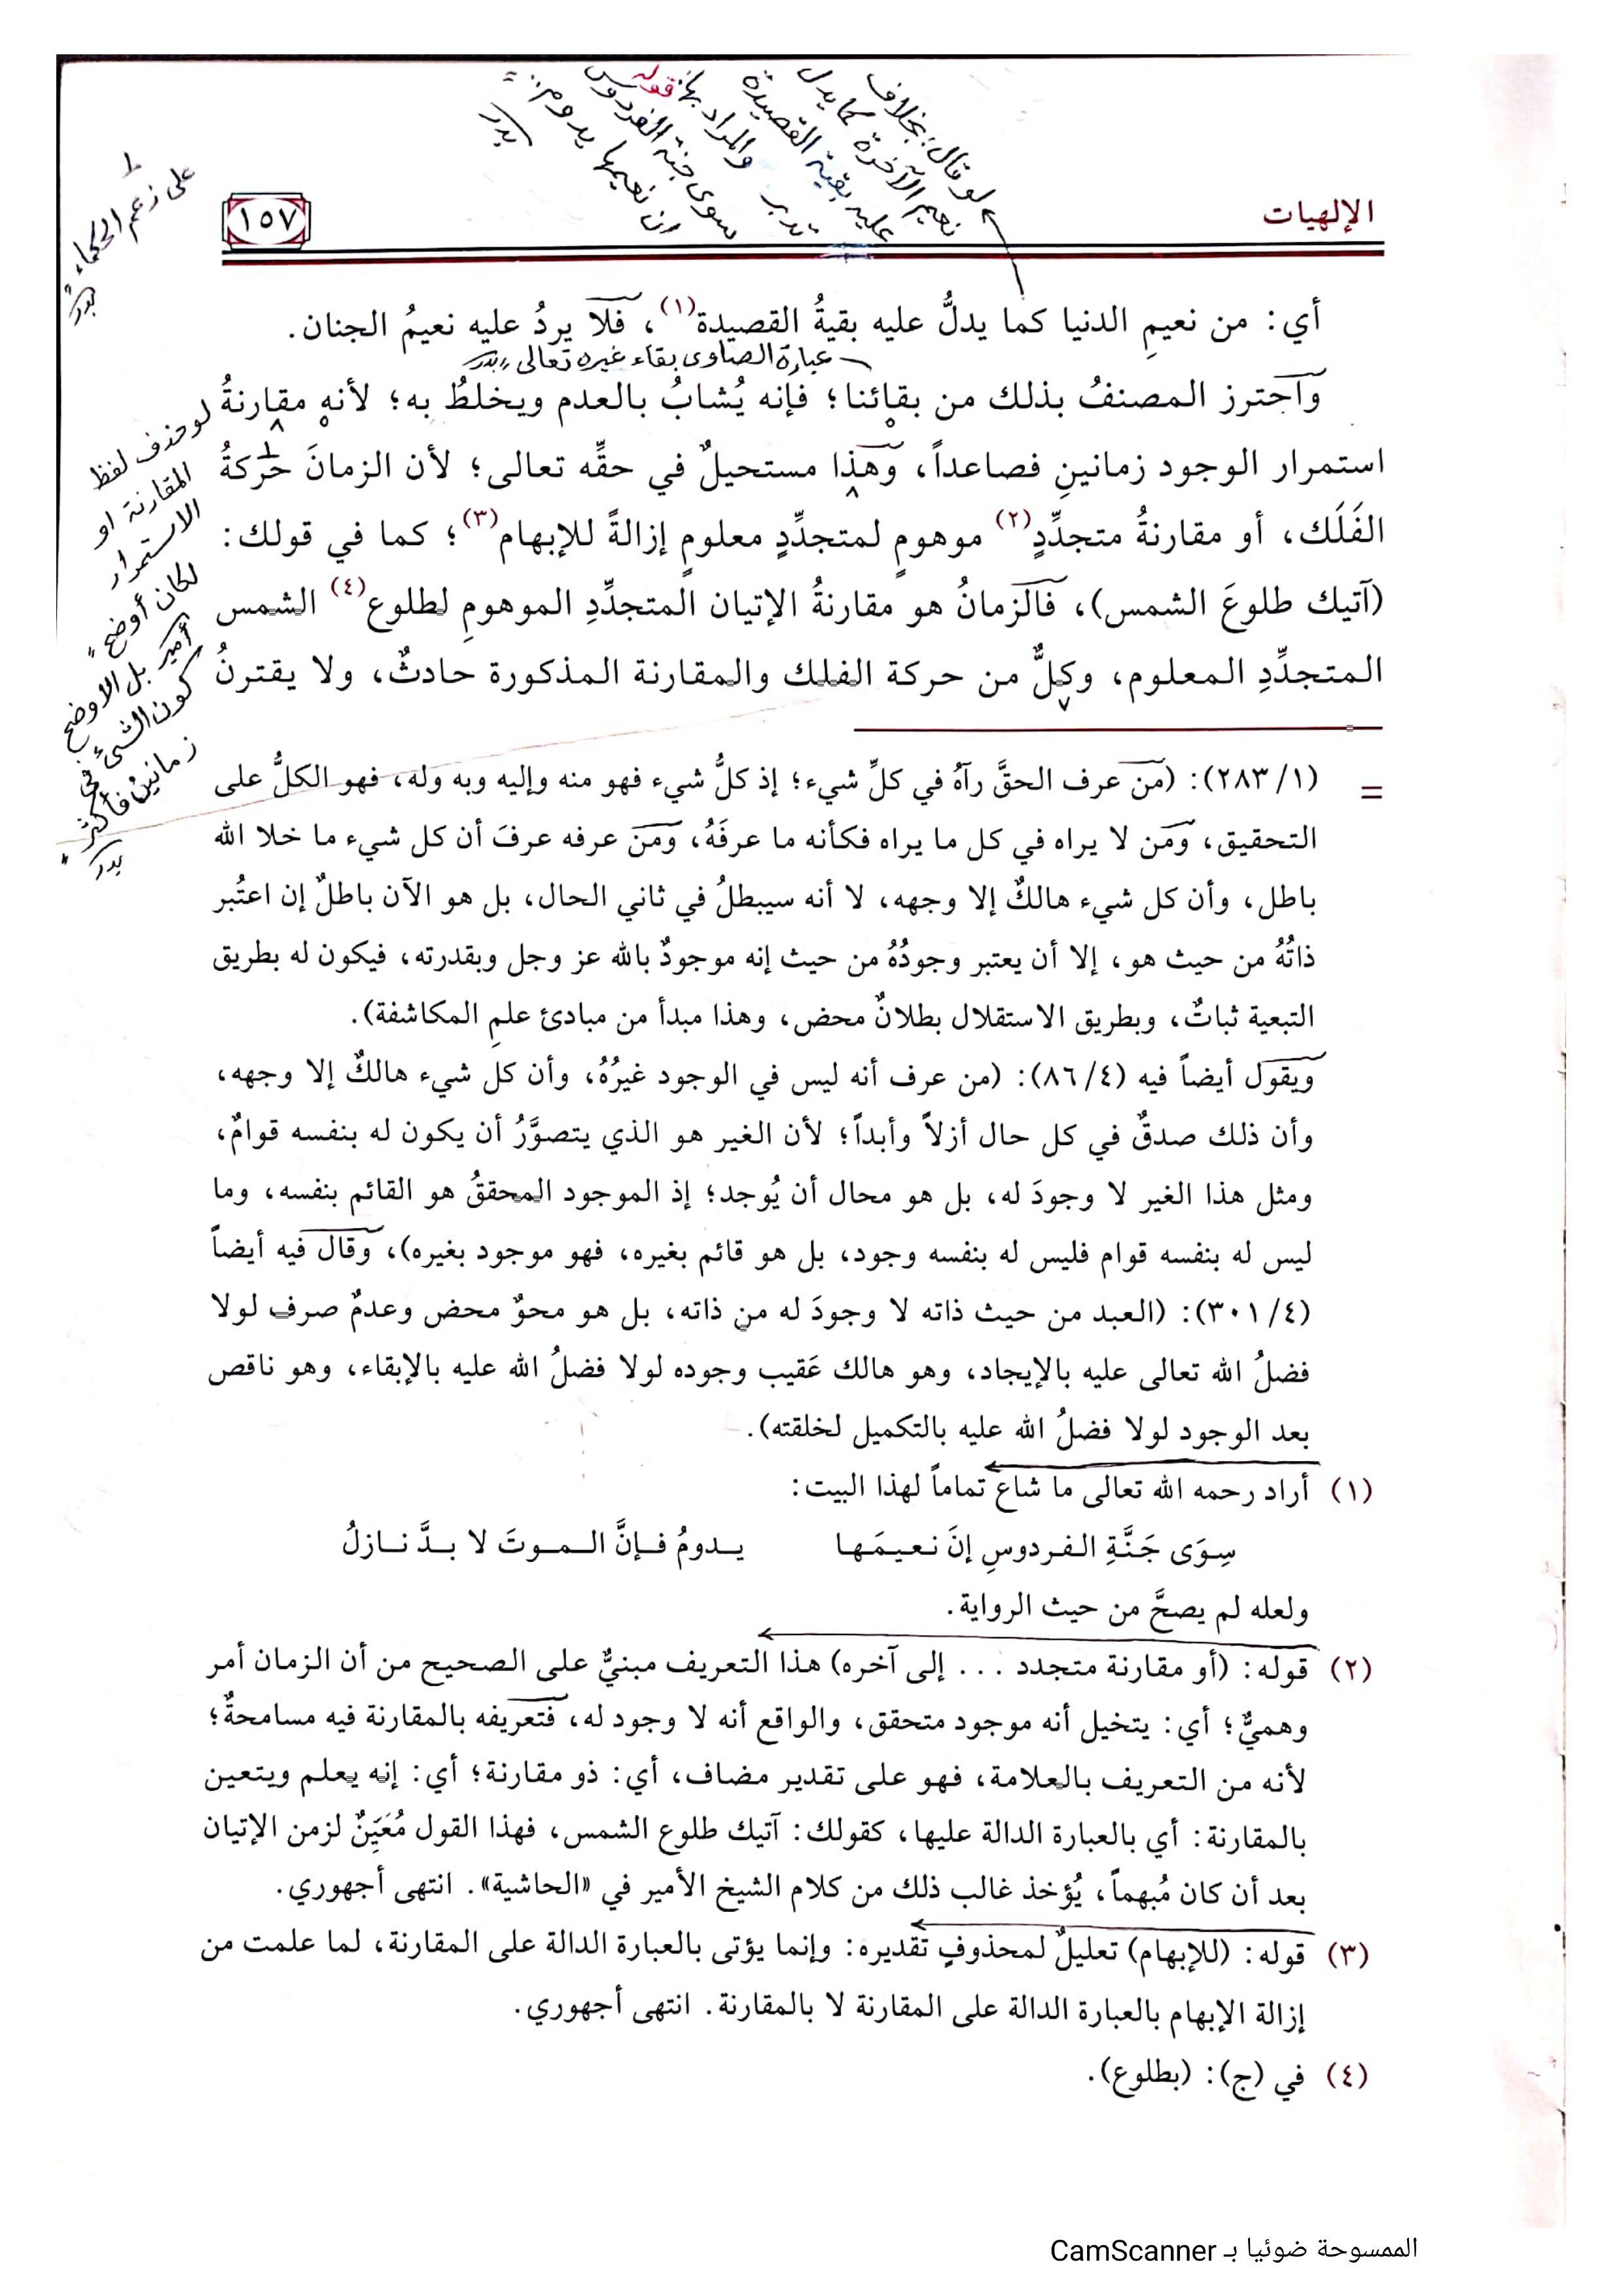 لو قال: بخلاف
نعيم الآخرة كما يدل
عليه بقية القصيدة
تدبر والمراد بها قوله
سوى جنة الفردوس
إن نعيمها يدوم
بدر
على زعم الحكماء
بدر
الإلهيات
١٥٧
أي: من نعيمِ الدنيا كما يدلُّ عليه بقيةُ القصيدة(١)، فلا يردُ عليه نعيمُ الجنان.
عبارة الصاوى بقاء غيره تعالى بدر
واحترز المصنفُ بذلك من بقائنا؛ فإنه يُشابُ بالعدم ويخلطُ به؛ لأنه مقارنةُ
استمرار الوجود زمانينِ فصاعداً، وهذا مستحيلٌ في حقِّه تعالى؛ لأن الزمانَ حركةُ
الفَلَك، أو مقارنةُ متجدِّدٍ(٢) موهومٍ لمتجدِّدٍ معلومٍ إزالةً للإبهام(٣)؛ كما في قولك:
(آتيك طلوعَ الشمس)، فالزمانُ هو مقارنةُ الإتيان المتجدِّدِ الموهومِ لطلوع(٤) الشمس
المتجدِّدِ المعلوم، وكلٌّ من حركة الفلك والمقارنة المذكورة حادثٌ، ولا يقترنُ
لو حذف لفظ
المقارنة او
الاستمرار
لكان أوضح
أمير بل الاوضح
كون الشئ في
زمانين فأكثر
بدر
= (٢٨٣/١): (من عرف الحقَّ رآهُ في كلِّ شيء؛ إذ كلُّ شيء فهو منه وإليه وبه وله، فهو الكلُّ على
التحقيق، ومَن لا يراه في كل ما يراه فكأنه ما عرفَهُ، ومَن عرفه عرفَ أن كل شيء ما خلا الله
باطل، وأن كل شيء هالكٌ إلا وجهه، لا أنه سيبطلُ في ثاني الحال، بل هو الآن باطلٌ إن اعتُبر
ذاتُهُ من حيث هو، إلا أن يعتبر وجودُهُ من حيث إنه موجودٌ بالله عز وجل وبقدرته، فيكون له بطريق
التبعية ثباتٌ، وبطريق الاستقلال بطلانٌ محض، وهذا مبدأ من مبادئ علمِ المكاشفة).
ويقول أيضاً فيه (٨٦/٤): (من عرف أنه ليس في الوجود غيرُهُ، وأن كل شيء هالكٌ إلا وجهه،
وأن ذلك صدقٌ في كل حال أزلاً وأبداً؛ لأن الغير هو الذي يتصوَّرُ أن يكون له بنفسه قوامٌ،
ومثل هذا الغير لا وجودَ له، بل هو محال أن يُوجد؛ إذ الموجود المحققُ هو القائم بنفسه، وما
ليس له بنفسه قوام فليس له بنفسه وجود، بل هو قائم بغيره، فهو موجود بغيره)، وقال فيه أيضاً
(٣٠١/٤): (العبد من حيث ذاته لا وجودَ له من ذاته، بل هو محوٌ محض وعدمٌ صرف لولا
فضلُ الله تعالى عليه بالإيجاد، وهو هالك عَقيب وجوده لولا فضلُ الله عليه بالإبقاء، وهو ناقص
بعد الوجود لولا فضلُ الله عليه بالتكميل لخلقته).
(١) أراد رحمه الله تعالى ما شاع تماماً لهذا البيت:
سِوَى جَنَّةِ الفردوسِ إنَ نعيمَها يدومُ فإنَّ الموتَ لا بدَّ نازلُ
ولعله لم يصحَّ من حيث الرواية.
(٢) قوله: (أو مقارنة متجدد ... إلى آخره) هذا التعريف مبنيٌّ على الصحيح من أن الزمان أمر
وهميٌّ؛ أي: يتخيل أنه موجود متحقق، والواقع أنه لا وجود له، فتعريفه بالمقارنة فيه مسامحةٌ؛
لأنه من التعريف بالعلامة، فهو على تقدير مضاف، أي: ذو مقارنة؛ أي: إنه يعلم ويتعين
بالمقارنة: أي بالعبارة الدالة عليها، كقولك: آتيك طلوع الشمس، فهذا القول مُعَيِّنٌ لزمن الإتيان
بعد أن كان مُبهماً، يُؤخذ غالب ذلك من كلام الشيخ الأمير في «الحاشية». انتهى أجهوري.
(٣) قوله: (للإبهام) تعليلٌ لمحذوفٍ تقديره: وإنما يؤتى بالعبارة الدالة على المقارنة، لما علمت من
إزالة الإبهام بالعبارة الدالة على المقارنة لا بالمقارنة. انتهى أجهوري.
(٤) في (ج): (بطلوع).
الممسوحة ضوئيا بـ CamScanner